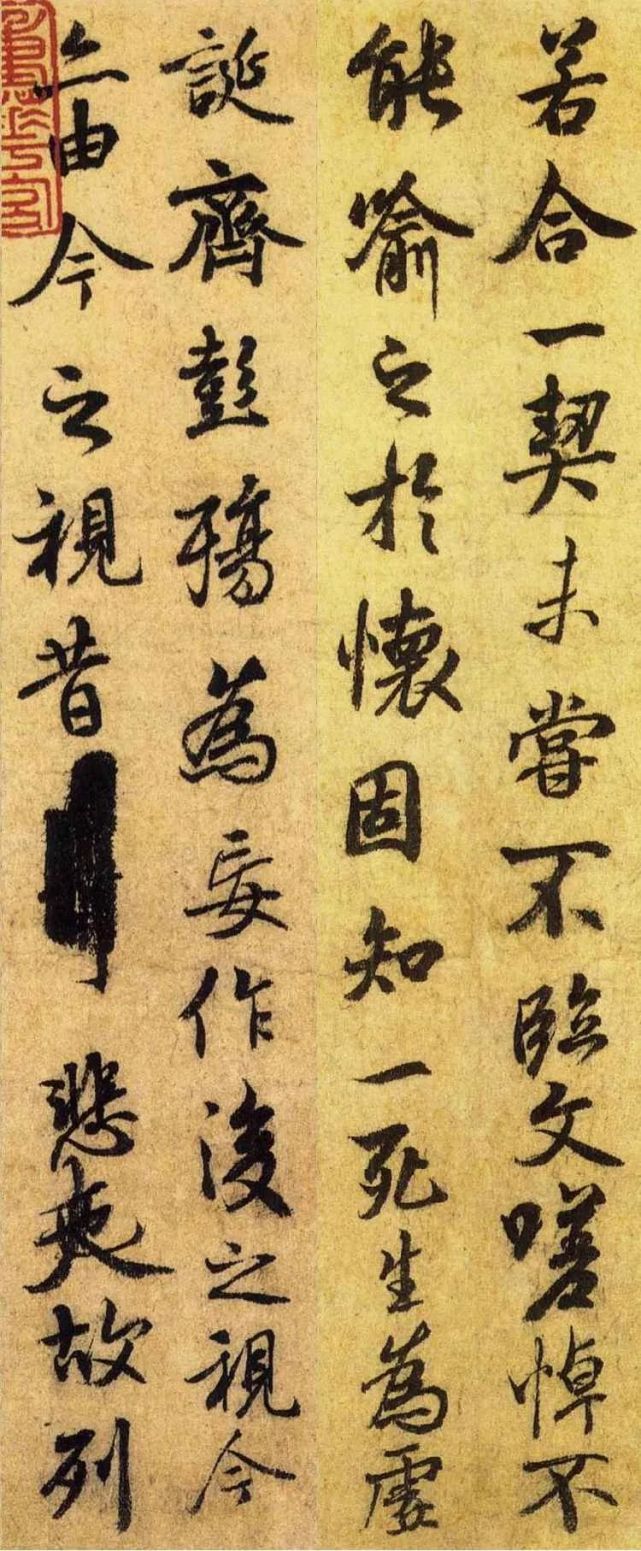 若合一契未嘗不臨文嗟悼不
能喻之於懷固知一死生為虛
誕齊彭殤為妄作後之視今
亦由今之視昔 悲夫故列